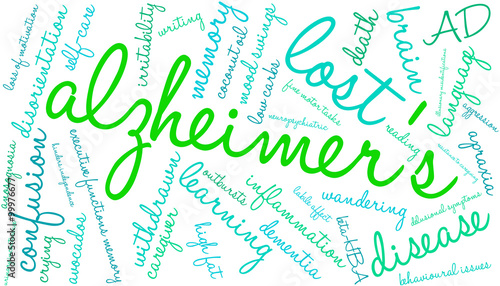 alzheimer's
lost
disease
confusion
learning
memory
brain
AD
language
death
disorientation
self-care
loss of motivation
irritability
writing
coconut oil
mood swings
low carbs
fine motor tasks
neuropsychiatric
reading
aggression
apraxia
wandering
delusional symptoms
behavioural issues
inflammation
dementia
labile affect
beta-HBA
outbursts
high fat
withdrawn
caregiver
executive functions memory
avocados
crying
anosognosia
Adobe Stock | #99976677